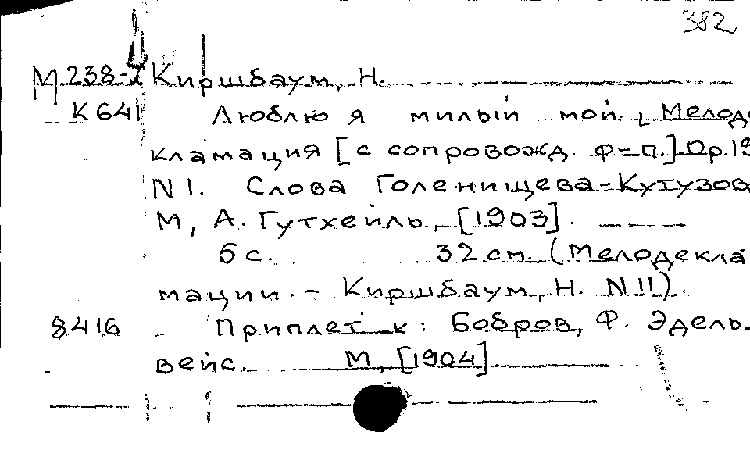 382
М 238-2 Киршбаум, Н.
К 641 Люблю я милый мой. Мелоде-
кламация [с сопровожд. ф-п.] Ор. 19
N 1. Слова Голенищева-Кутузов
М, А. Гутхейль, [1903].
6 с. 32 см. (Мелодекла
мации. - Киршбаум, Н. N 11).
8416 Приплет к: Бобров, Ф. Эдель-
вейс. М, [1904]